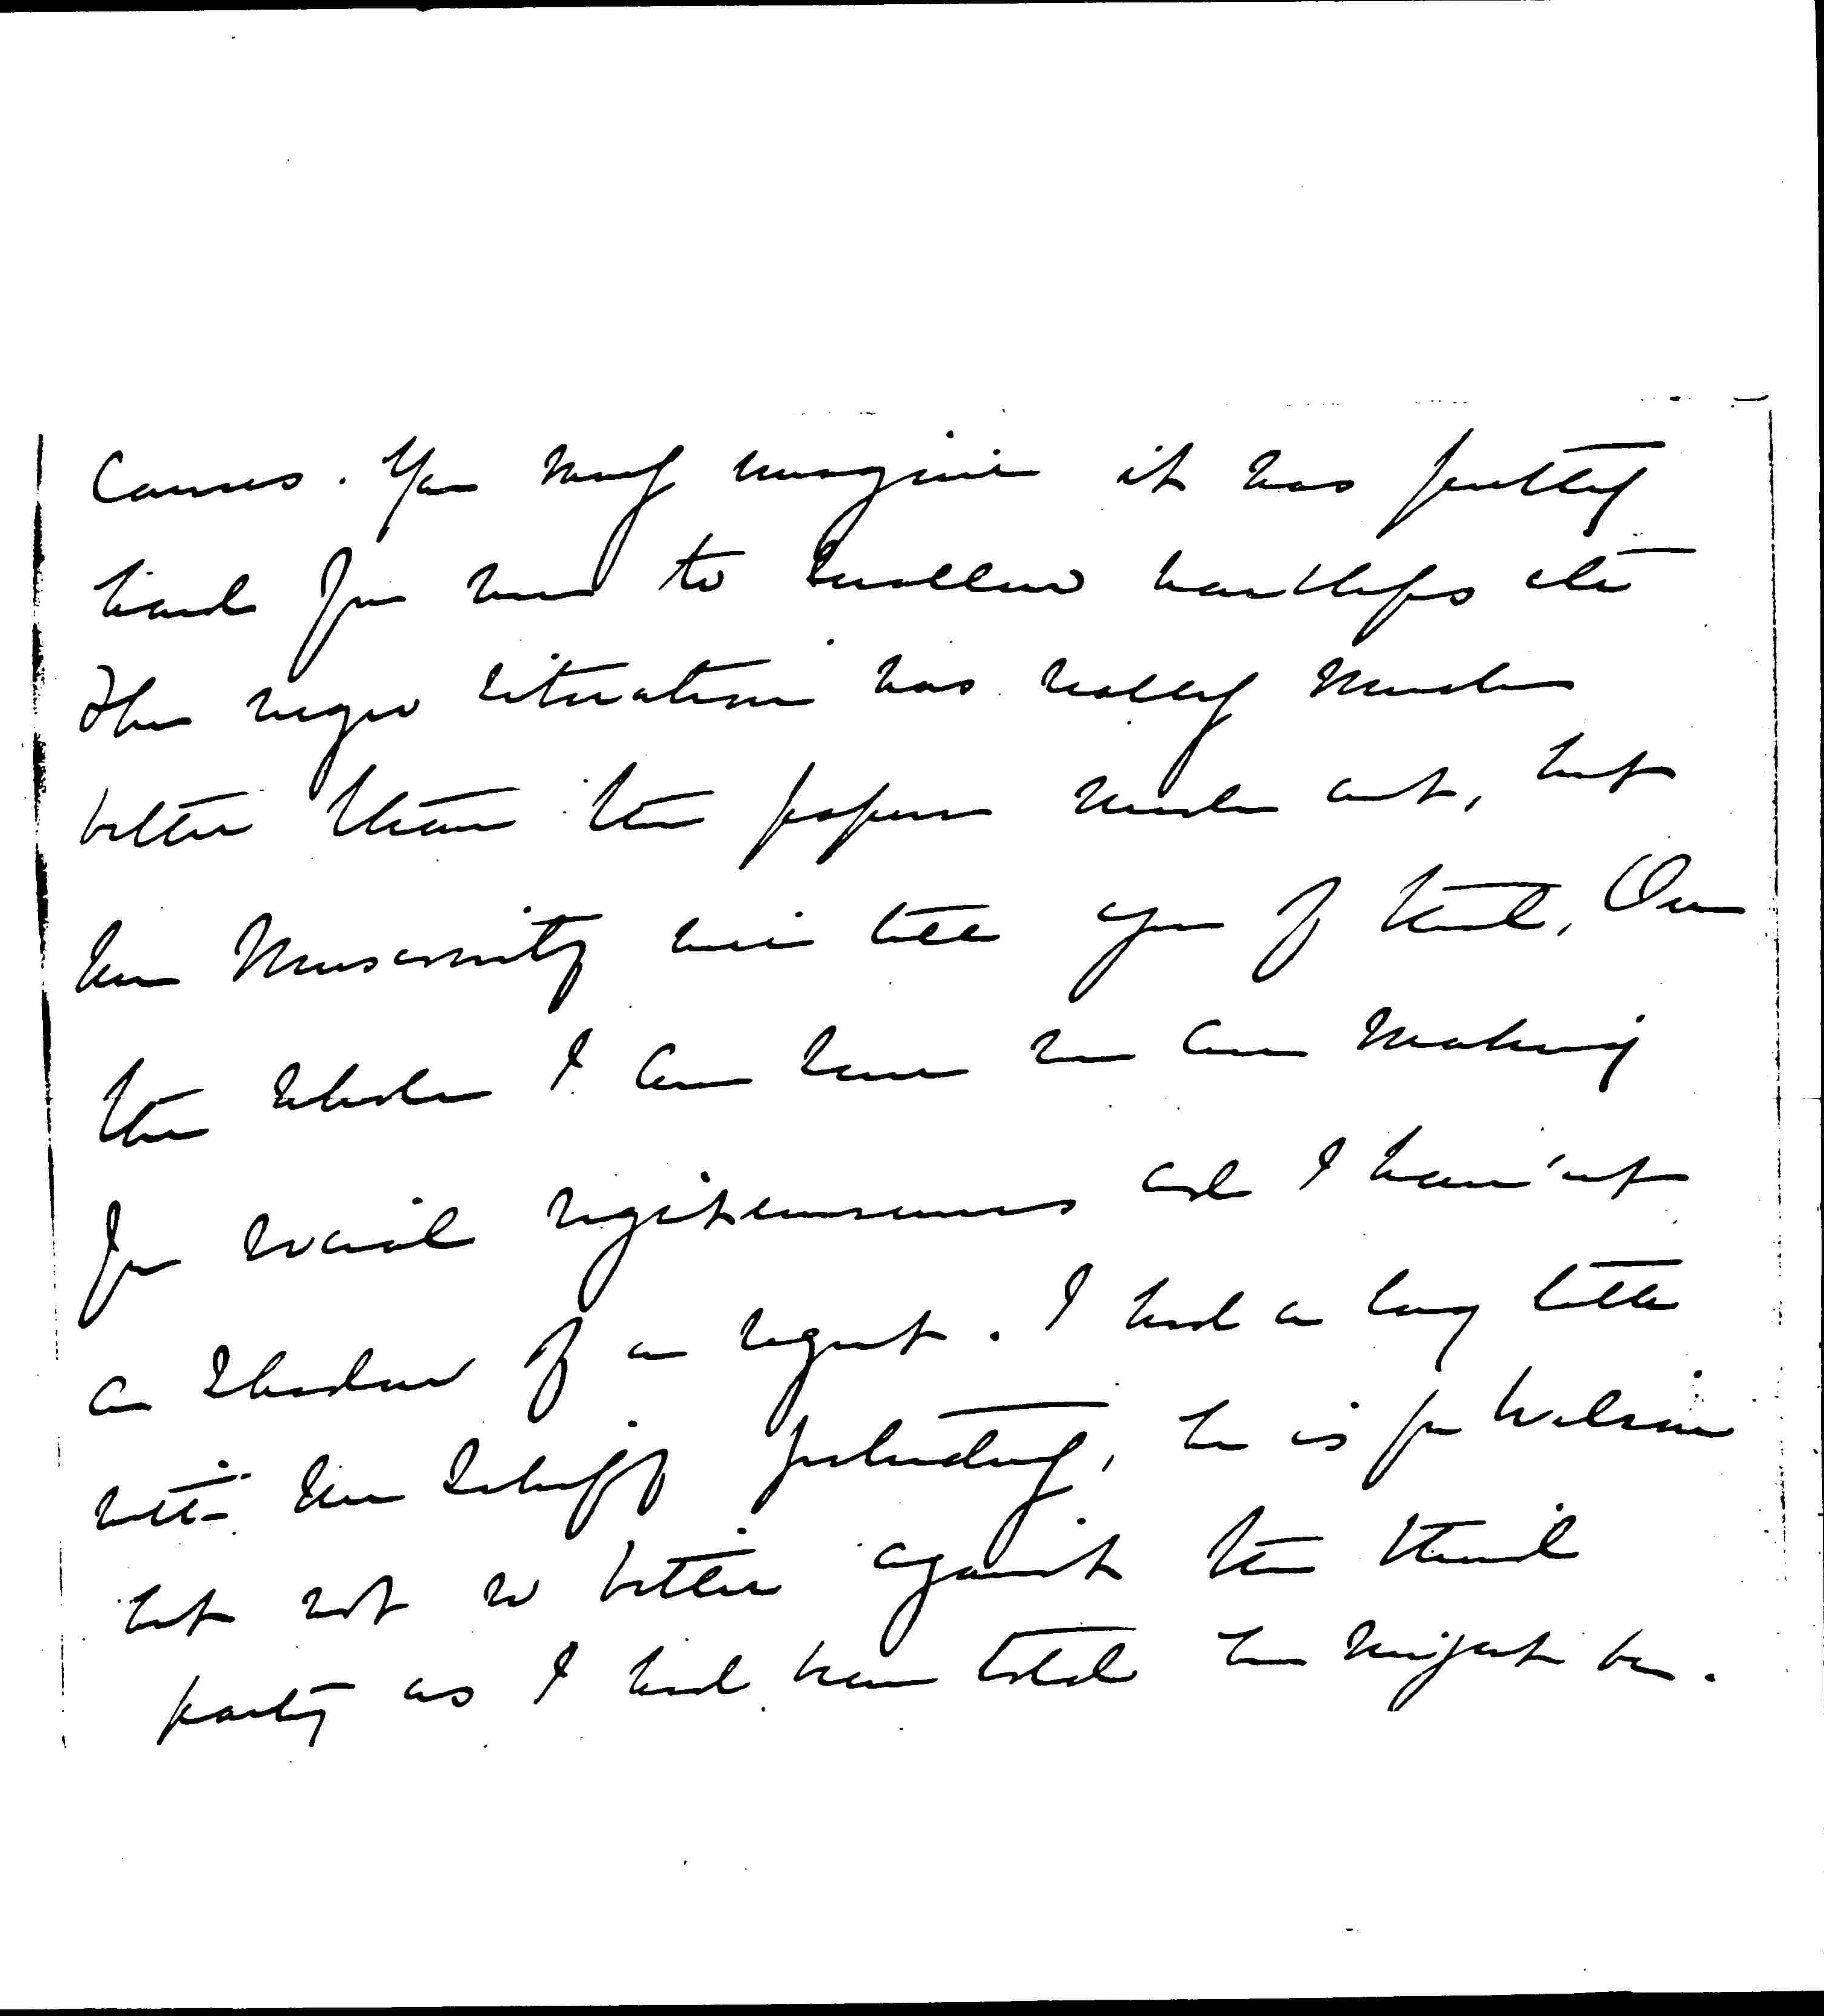 causes. You may imagine it was pretty
hard for me to swallow battleships etc
The negro situation was really much
better than the papers made out, but
Mr Moscowitz will tell you of that. On
the whole I am sure we are making
for social righteousness and I haven't
a shadow of a regret. I had a long letter
with Mr Schiff yesterday, he is for Wilson
but not so bitter against the third
party as I had been told he might be.